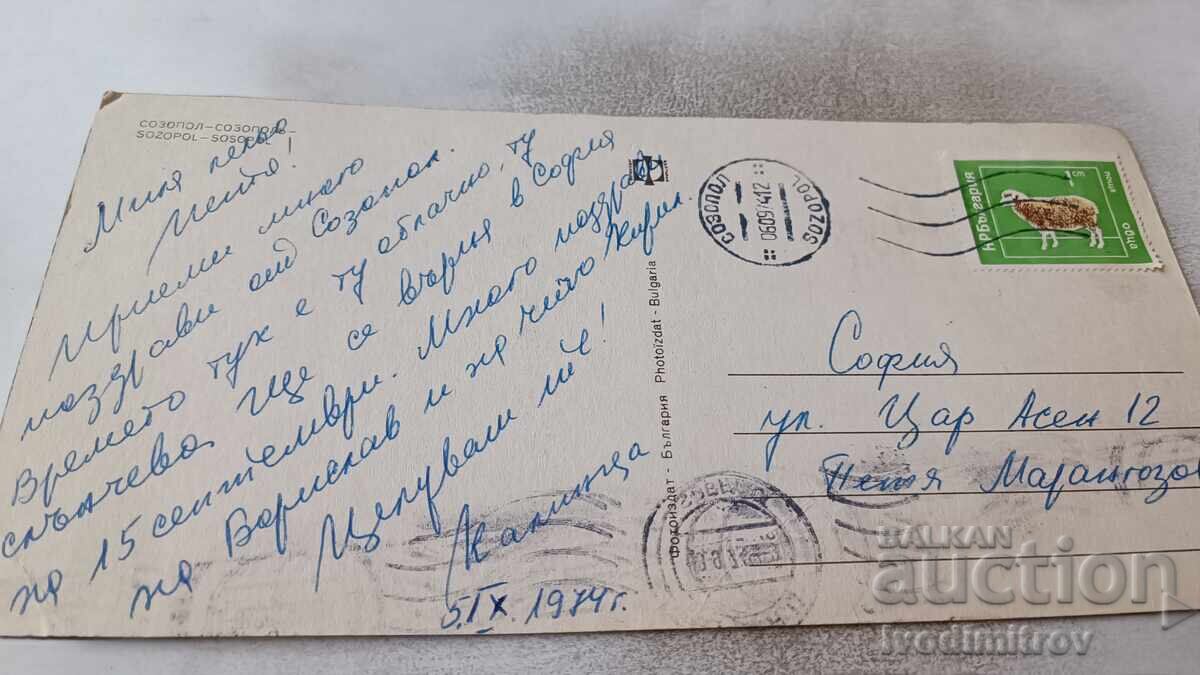 СОЗОПОЛ–СОЗОПОЛЬ–
SOZOPOL–SOSOPOL
Мила леля
Петя!
Приеми много
поздрави от Созопол.
Времето тук е ту облачно, ту
слънчево. Ще се върна в София
на 15 септември. Много поздрави
на Борислав и на чичо Кирил.
Целувам те!
Калинка
5.IX.1974г.
Фотоиздат - България Photoïzdat - Bulgaria
СОЗОПОЛ
060974.12
SOZOPOL
НР България
1 cm
София
ул. Цар Асен 12
Петя Марангозов
BALKAN
auction
ivodimitrov